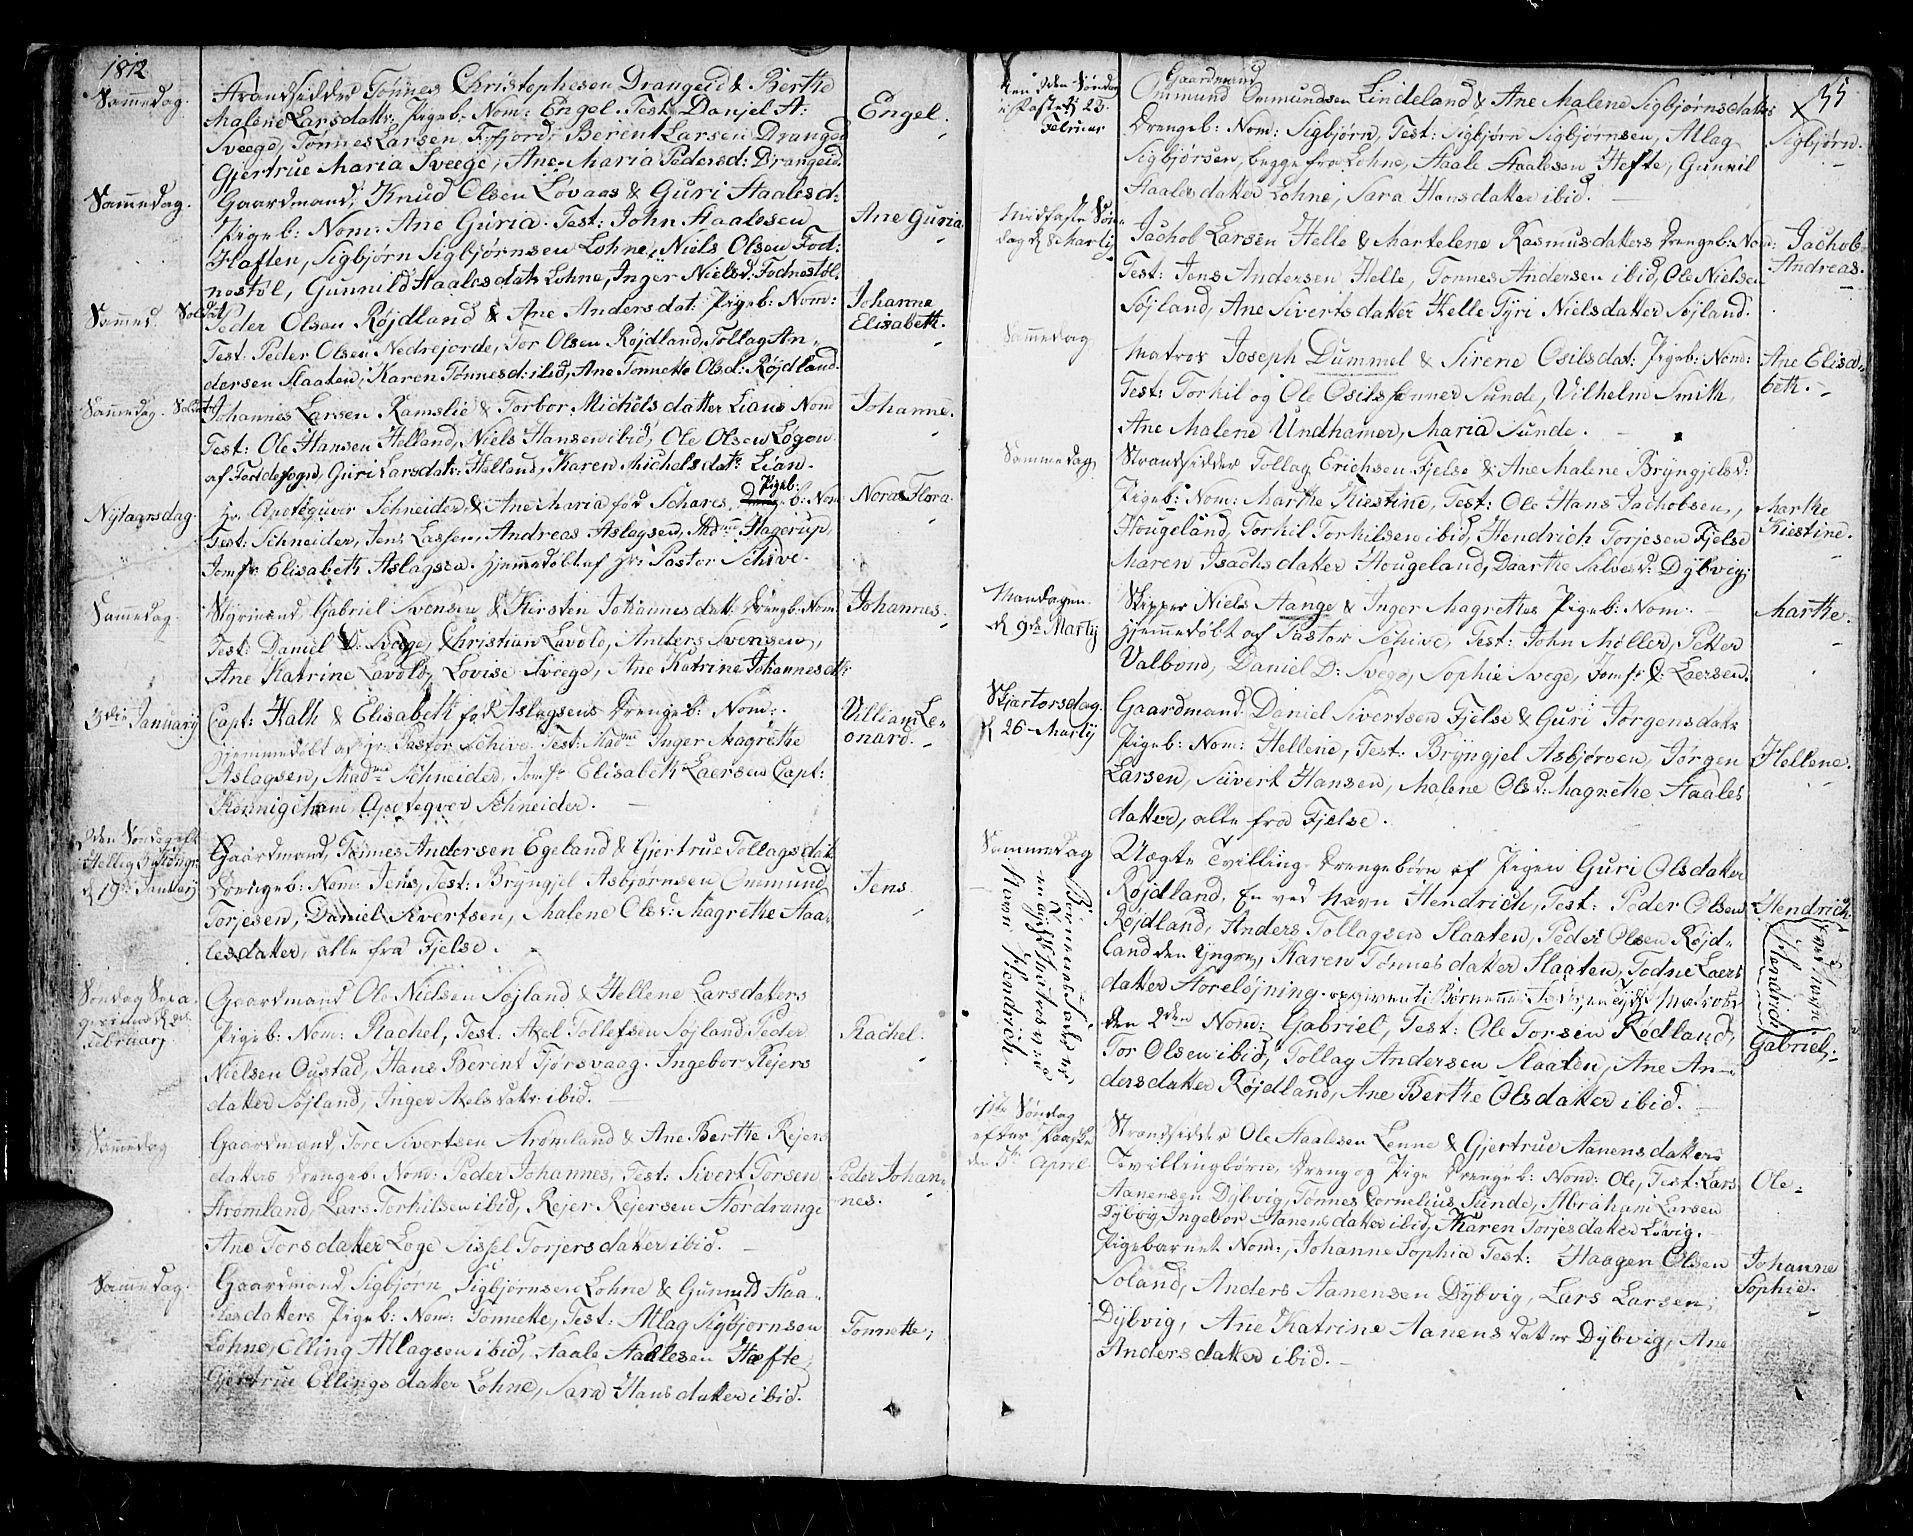 1812
Sam̄edag.
Strandsidder Tønnes Christophesen Drangeid & Berthe
Malene Larsdatter Pigeb: Nom: Engel. Test: Daniel A:
Sveege, Tønnes Larsen Fifjord, Berent Larsen Dranged
Gjertrue Maria Sveege, Ane Maria Pedersd: Drangeid.
Engel.
Sam̄edag.
Gaardmand, Knud Olsen Løvaas & Guri Staalesd:
Pigeb: Nom: Ane Guria. Test: John Staalesen
Haften, Sigbjørn Sigbjørnsen Lohne, Niels Olsen Fod:
nestøl, Gunnild Staalesdatr Lohne, Inger Nielsd. Fodnestøl.
Ane Guria
Sam̄ed.
Soldat
Peder Olsen Røjdland & Ane Andersdat: Pigeb: Nom:
Test: Peder Olsen Nedrejorde, Tor Olsen Røjdland, Tollag An-
dersen Slaaten, Karen Tønnesd: ibid, Ane Tonnette Olsd: Røjdland.
Johanne
Elisabeth.
Sam̄edag.
Soldat
Johannes Larsen Ramslie & Torbor Michelsdatter Lians Nom
Test: Ole Hansen Helland, Niels Hansen ibid, Ole Olsen Løgon
af Fordesogn, Guri Larsdatr: Helland, Karen Michelsdatr Lian.
Johanne.
Nytaarsdag.
Hr. Apoteqver Schneider & Ane Maria fød Schares, Pigeb: Nom
Test: Schneider, Jens Lassen, Andreas Aslagsen, Mdme Hagerup,
Jomfr Elisabeth Aslagsen. hjemmedøbt af Hr: Pastor Schive.
Nora Flora.
Sam̄edag.
Styrmand Gabriel Svensen & Kirsten Johannesdatt: Drengb: Nom
Test: Daniel D: Svege, Christian Lavold, Anders Svensen,
Ane Katrine Lavold, Lovise Sveege, Ane Katrine Johannesdtr
Johannes.
3die Januarij
Capt: Kalh & Elisabeth fød Aslagsens Drengeb: Nom:
hjemmedøbt af Hr. Pastor Schive. Test: Madme Inger Magrethe
Aslagsen, Madme Schneider, Jomfr Elisabeth Laersen Capt:
Apoteqver Schneider.
Ulliam Le-
onard.
2den Søndag eft
Hellig 3 Konger
d 19de Januarij
Gaardmand, Tønnes Andersen Egeland & Gjertrue Tollagsdatr
Drengeb: Nom: Jens, Test: Bryngjel Asbjørnsen Ommund
Torjesen, Daniel Sivertsen, Malene Olsd: Magrethe Staa-
lesdatter, alle fra Fjelse.
Jens.
Søndag Sexa-
gesima d 2de
Februarij.
Gaardmand Ole Nielsen Søjland & Hellene Larsdatters
Pigeb: Nom: Rachel, Test: Axel Tollefsen Søjland, Peder
Nielsen Oustad, Hans Berent Fjørsvaag. Ingebor Rejers
datter Søjland, Inger Axelsdatr ibid.
Rachel.
Sam̄edag
Gaardmand Tore Sivertsen Strømland & Ane Berthe Rejers
datters Drengeb: Nom: Peder Johannes, Test: Sivert Torsen
Strømland, Lars Torkilsen ibid, Rejer Rejersen Stordrange
Ane Torsdatter Loge Sissel Torjersdatter ibid.
Peder Johan-
nes.
Sam̄edag.
Gaardmand Sigbjørn Sigbjørnsen Lohne & Gunnild Staa-
lesdatters Pigeb: Nom: Tonnette, Test: Atlag Sigbjørnsen
Lohne, Elling Atlagsen ibid, Staale Staalesen Hæfte,
Gjertrue Ellingsdatter Lohne, Sara Hansdatter ibid.
Tonnette,
35
den 2den Søndag
i Fasten d 23
Februar
Gaardmand
Ommund Ommundsen Lindeland & Ane Malene Sigbjørnsdatters
Drengeb: Nom: Sigbjørn, Test: Sigbjørn Sigbjørnsen, Atlag
Sigbjørsen, begge fra Lohne, Staale Staalesen Hefte, Gunnil
Staalesdatter Lohne, Sara Hansdatter ibid.
Sigbjørn.
Midfaste Søn-
dag d 8 Martij
Jachob Larsen Helle & Martelene Rasmusdatters Drengeb: Nom:
Test: Jens Andersen Helle, Tonnes Andersen ibid, Ole Nielsen
Søjland, Ane Sivertsdatter Helle Tyri Nielsdatter Søjland.
Jachob
Andreas.
Sam̄edag
Matros Joseph Dummel & Sirene Osilsdat: Pigeb: Nom:
Test: Torkil og Ole Osilssønner Sunde, Vilhelm Smith,
Ane Malene Undhamer, Maria Sunde.
Ane Elisa-
beth.
Sammedag
Strandsidder Tollag Erichsen Fjelse & Ane Malene Bryngjelsd:
Pigeb: Nom: Marthe Kiestine, Test: Ole Hans Jachobsen,
Hougeland, Torkil Torkilsen ibid, Hendrich Torjesen Fjelse
Maren Isachsdatter Hougeland, Daarthe Salvesd: Dybvig,
Marthe
Kiestine.
Mandagen
d 9de Martij
Skipper Niels Aange & Inger Magrethes Pigeb: Nom:
hjemmedøbt af Pastor Schive, Test: John Møller, Petter
Valbond, Daniel D: Svege, Sophie Svege, Jomfr D: Laersen.
Marthe.
Skjertorsdag
d 26 Martij
Gaardmand Daniel Sivertsen Fjelse & Guri Jørgensdatr
Pigeb: Nom: Hellene, Test: Bryngjel Asbjørnsen, Jørgen
Larsen, Sivert Hansen, Malene Olsd: Magrethe Staales
datter, alle fra Fjelse.
Hellene.
Sammedag
Uægte Tvilling Drengebørn af Pigen Guri Olsdatter
Røjdland. En ved Navn Hendrich, Test: Peder Olsen
Røjdland, Anders Tollagsen Slaaten, Peder Olsen Røjd-
land den Yngre, Karen Tønnesdatter Slaaten, Todne Laers
datter Storeløjning. opgiven til Børnenes Fader, en Tydsk Matros
den 2den Nom: Gabriel, Test: Ole Torsen Rødland,
Tor Olsen ibid, Tollag Andersen Slaaten, Ane An-
dersdatter Røjdland, Ane Berthe Olsdatter ibid.
Børnenes Fader er
en tydsk Matros ved
Navn Hendrich.
Hendrich
ved Navn
Hendrich
Gabriel.
1ste Søndag
efter Paaske
den 5te April
Strandsidder Ole Staalesen Lenne & Gjertrue Aanensdatters
Tvillingbørn, Dreng og Pige Drengeb: Nom: Ole, Test: Lars
Aanensen Dybvig, Tønnes Cornelius Sunde, Abraham Larsen
Dybvig, Ingebor Aanensdatter ibid, Karen Torjesdatter Løvig.
Pigebarnet Nom: Johanne Sophia Test: Haagen Olsen
Soland, Anders Aanensen Dybvig, Lars Larsen
Dybvig, Ane Katrine Aanensdatter Dybvig, Ane
Andersdatter ibid.
Ole.
Johanne
Sophie.